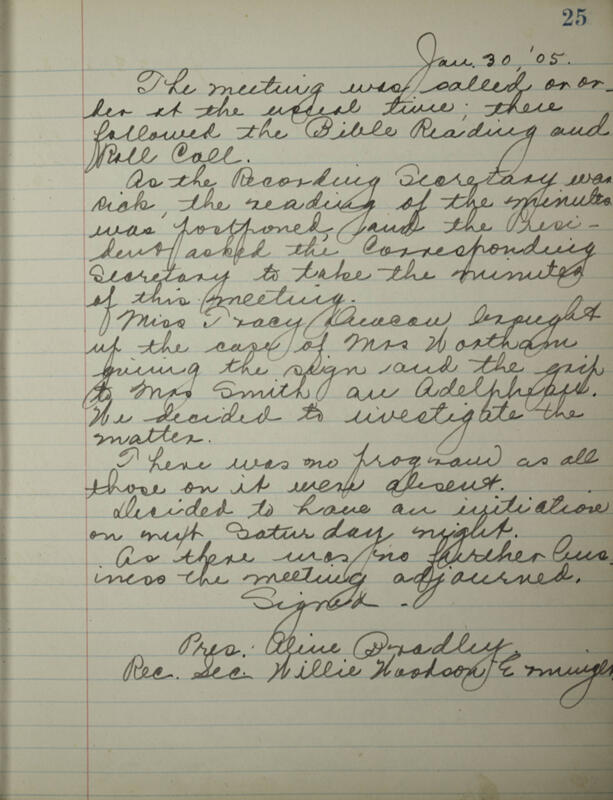 25
Jan. 30, '05.
The meeting was called or or-
der at the usual time; there
followed the Bible Reading and
Roll Call.
As the Recording Secretary was
sick, the reading of the minutes
was postponed, and the Presi-
dent asked the Corresponding
Secretary to take the minutes
of this meeting.
Miss Tracy brought
up the case of Mrs Wortham
giving the sign and the grip
to Mrs Smith an Adelphean.
We decided to investigate the
matter.
There was no program as all
those on it were absent.
Decided to have an initiation
on next Saturday night.
As there was no further bus-
iness the meeting adjourned.
Signed -
Pres. Aline Bradley.
Rec. Sec. Willie